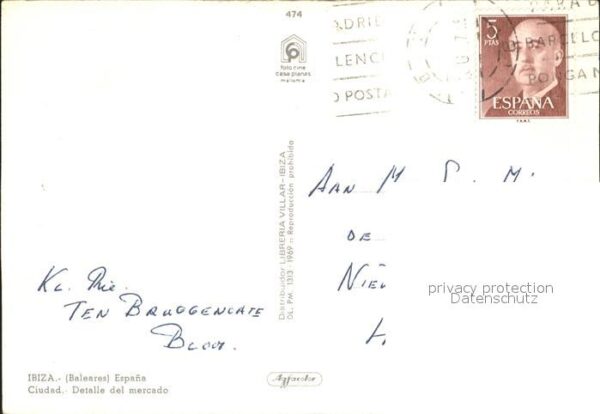 474
foto cine
casa planas
mallorca
ADRID
LENCI
O POSTA
PARA B
BARCELO
PONGA
5
PTAS
ESPAÑA
CORREOS
F.N.M.T.
Distribuidor LIBRERIA VILLAR-IBIZA
DL. PM. 1313 1969 = Reproducción prohibida
AAN M P. M.
DE
privacy protection
Datenschutz
TEN BRUGGENCATE
IBIZA.- (Baleares) España
Ciudad.- Detalle del mercado
Agfacolor